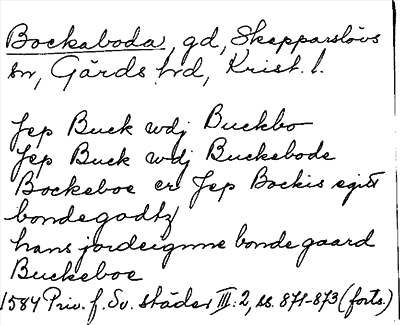 Bockaboda, gd, Skepparslövs
sn, Gärds hd, Krist. l.
Jep Buck wdj Buckbo
Jep Buck wdj Buckebode
Bockeboe er Jep Bockis egitt
bondegodtz
hans jordeignne bondegaard
Buckeboe
1584 Priv. f. Sv. städer III:2, ss. 871-873 (forts.)